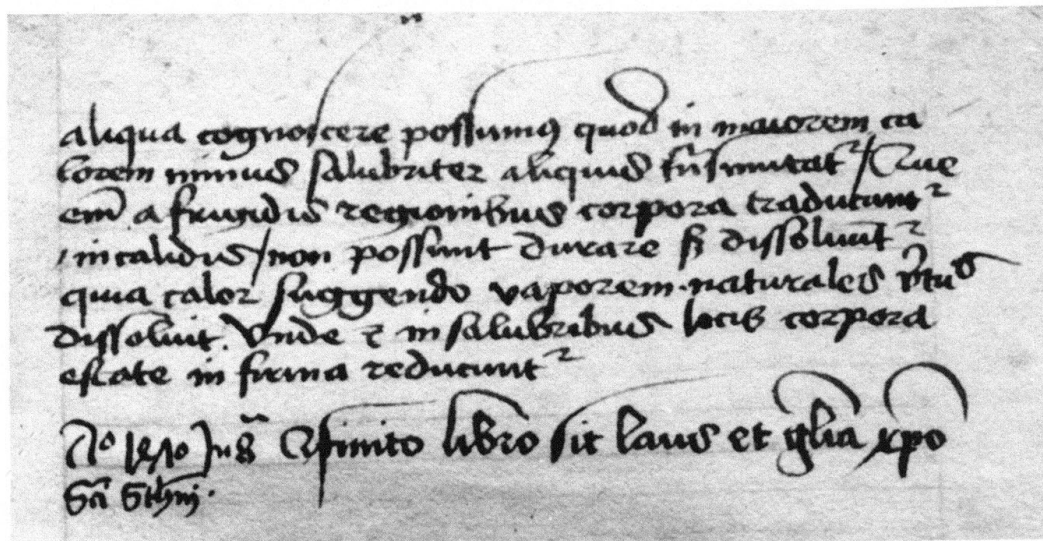 aliqua cognoscere possumus quod in maiorem ca
lorem minus salubriter aliquis transmutatᷣ / Que
em̄ a frigidis regionibus corpora traducuntᷣ
in calidis / non possunt durare sꝫ dissoluuntᷣ
quia calor suggendo vaporem naturales v̄tutes
dissoluit. Vnde ⁊ in salubribus locis corpora
estate in firma reducuntᷣ
finito libro sit laus et gl̄ia xp̄o